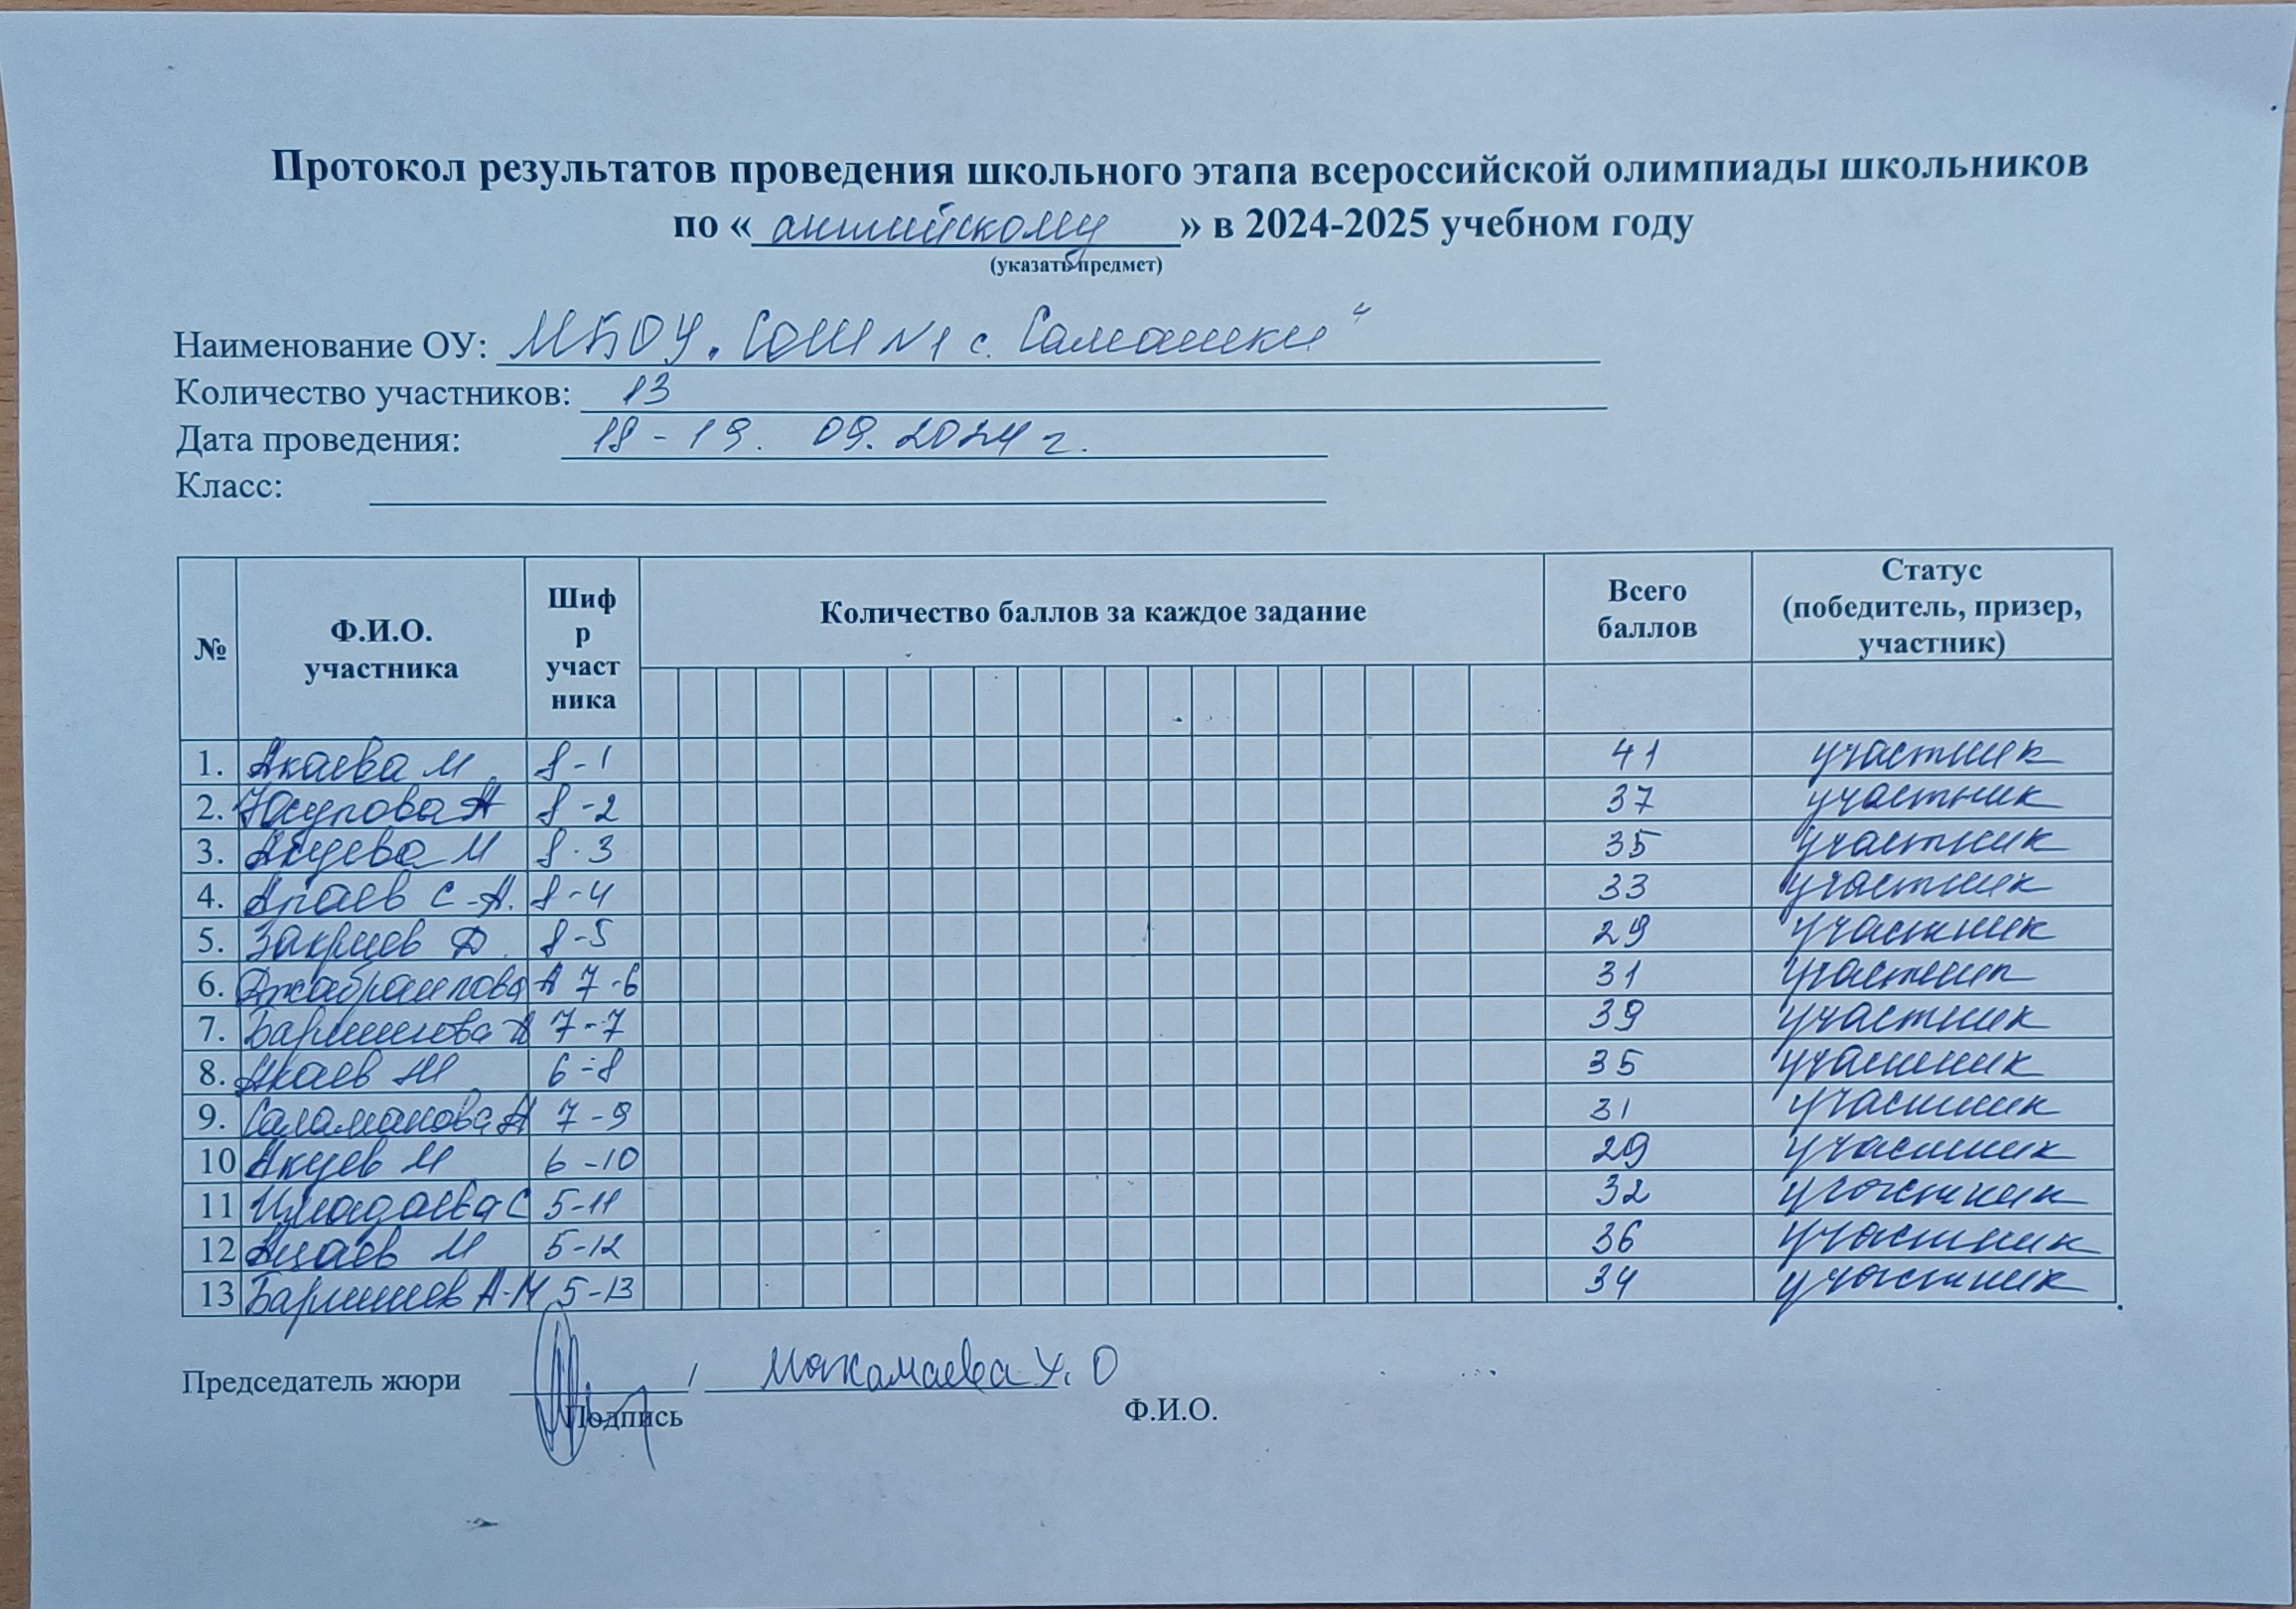 Протокол результатов проведения школьного этапа всероссийской олимпиады школьников
по « английскому » в 2024-2025 учебном году
(указать предмет)
Наименование ОУ: МБОУ „СОШ №1 с. Самашки“
Количество участников: 13
Дата проведения: 18 - 19. 09. 2024 г.
Класс:
№ Ф.И.О. участника Шифр участника Количество баллов за каждое задание Всего баллов Статус (победитель, призер, участник)
1. Акаева М 8-1 41 участник
2. Юсупова А 8-2 37 участник
3. Акуева М 8-3 35 участник
4. Арсаев С-А. 8-4 33 участник
5. Закриев Д. 8-5 29 участник
6. Джабраилова А 7-6 31 участник
7. Баршигова А 7-7 39 участник
8. Акаев М 6-8 35 участник
9. Саламанова А 7-9 31 участник
10 Акуев М 6-10 29 участник
11 С 5-11 32 участник
12 М 5-12 36 участник
13 А-М 5-13 34 участник
Председатель жюри / Махамаева Х. О
Подпись Ф.И.О.